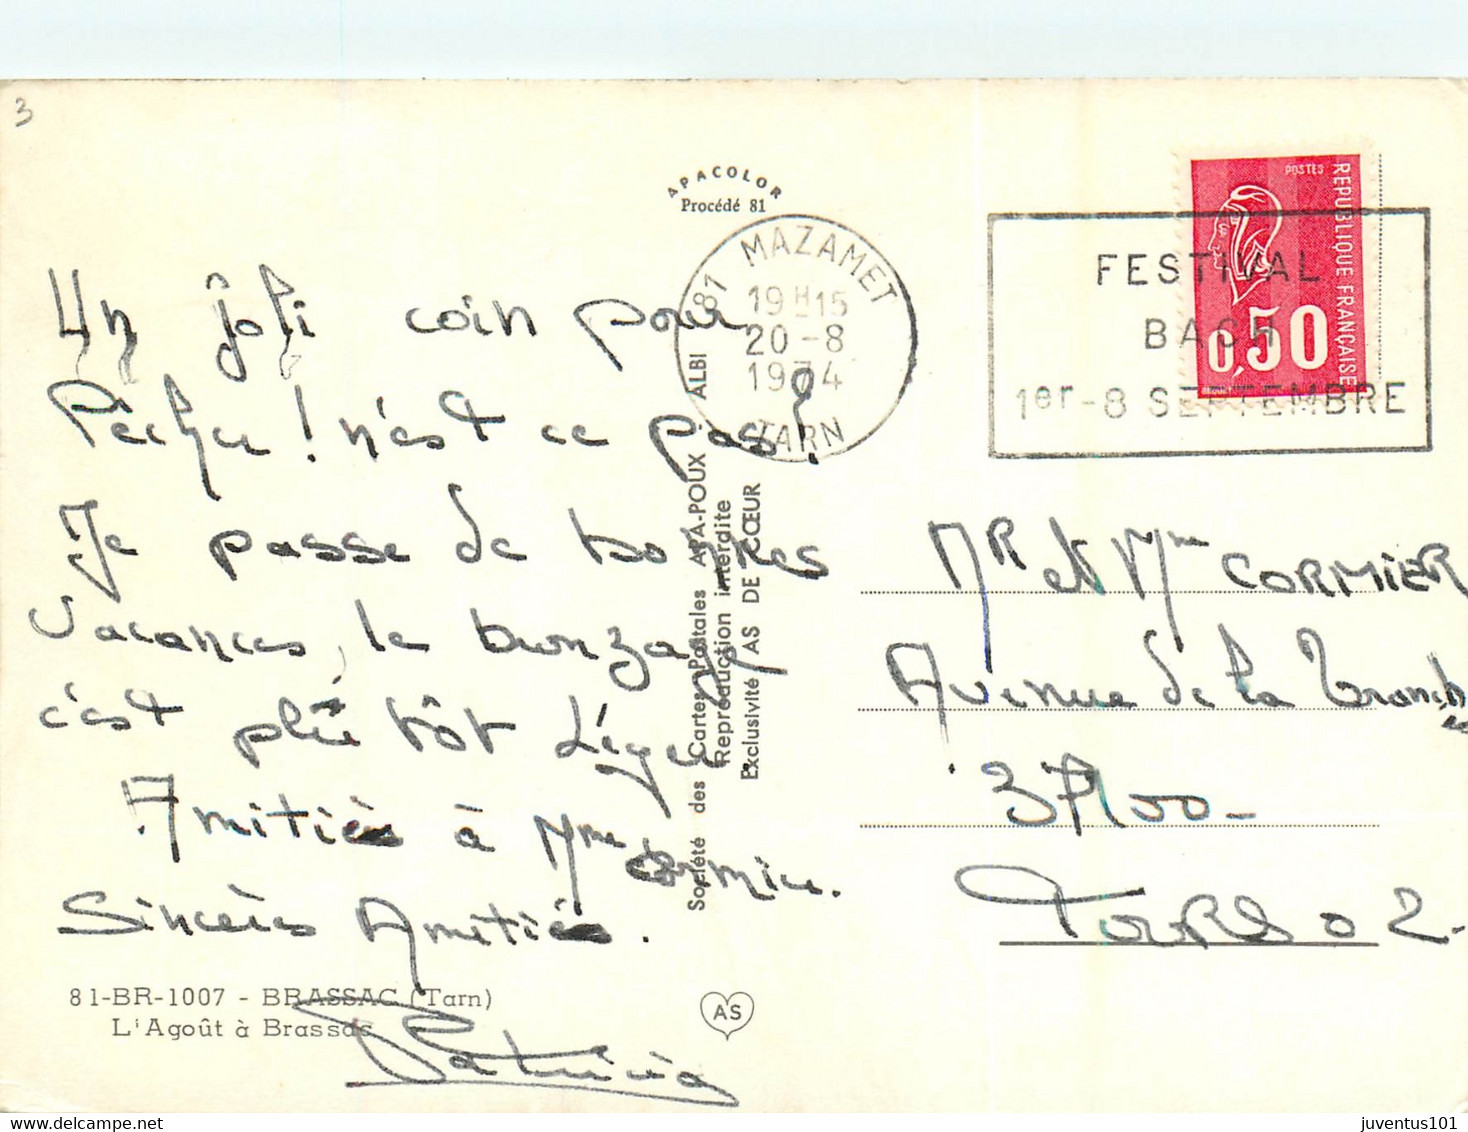 3
APACOLOR
Procédé 81
81 MAZAMET
19H15
20-8
1974
TARN
FESTIVAL
BACH
1er-8 SEPTEMBRE
POSTES
REPUBLIQUE FRANÇAISE
0,50
Un joli coin pour
Pêcher ! n'est ce pas ?
Je passe de bonnes
vacances, le bronzage
c'est plutôt léger.
Amitiés à Mme Cormier.
Sincères Amitiés.
Patricia
Société des Cartes Postales APA-POUX ALBI
Reproduction interdite
Exclusivité AS DE CŒUR
Mr et Mme CORMIER
Avenue de la Tranchée
37100-
TOURS 02.
81-BR-1007 - BRASSAC (Tarn)
L'Agoût à Brassac
AS
delcampe.net
juventus101